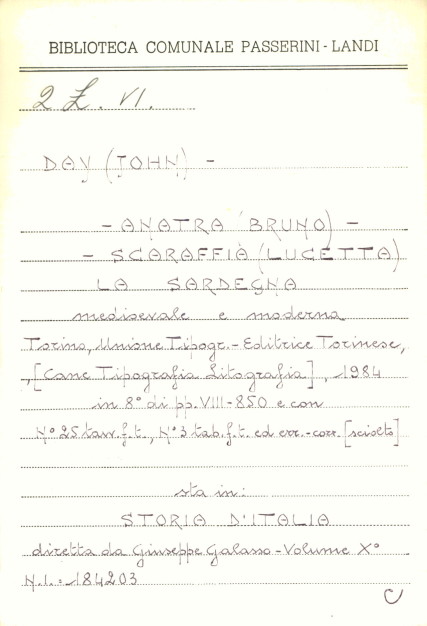 BIBLIOTECA COMUNALE PASSERINI - LANDI
2 Z. VI.
DAY (JOHN) -
- ANATRA (BRUNO) -
- SCARAFFIA (LUCETTA)
LA SARDEGNA
medioevale e moderna
Torino, Unione Tipogr.- Editrice Torinese,
, [Cane Tipografia Litografia] , 1984
in 8° di pp. VIII-850 e con
N° 25 tavv. f.t., N° 3 tab. f.t. ed err.-corr. [sciolto]
sta in:
STORIA D'ITALIA
diretta da Giuseppe Galasso - Volume X°
N.I.: 184203
C